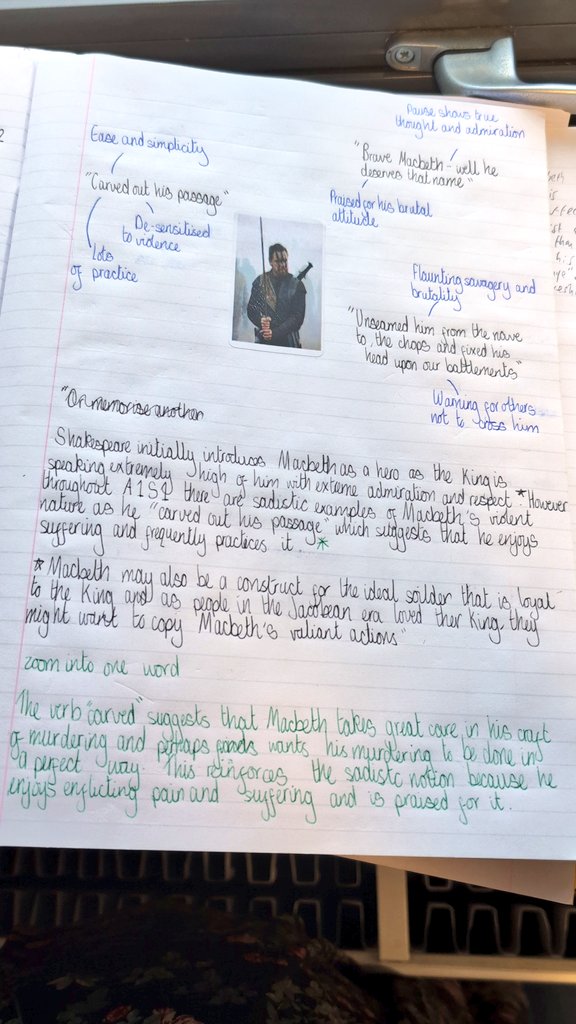 Pause shows true
thought and admiration
Ease and simplicity
"Brave Macbeth - well he
deserves that name"
"Carved out his passage"
Praised for his brutal
attitude
De-sensitised
to violence
lots
of practice
Flaunting savagery and
brutality
"Unseamed him from the nave
to the chops and fixed his
head upon our battlements"
Warning for others
not to cross him
Shakespeare initially introduces Macbeth as a hero as the King is
speaking extremely high of him with extreme admiration and respect * However
throughout A1S2 there are sadistic examples of Macbeth's violent
nature as he "carved out his passage" which suggests that he enjoys
suffering and frequently practices it. *
* Macbeth may also be a construct for the ideal soilder that is loyal
to the King and as people in the Jacobean era loved ther King they
might want to copy Macbeth's valiant actions"
zoom into one word
The verb "carved" suggests that Macbeth takes great care in his craft
of murdering and perhaps wants his murdering to be done in
a perfect way. This reinforces the sadistic notion because he
enjoys enflicting pain and suffering and is praised for it.